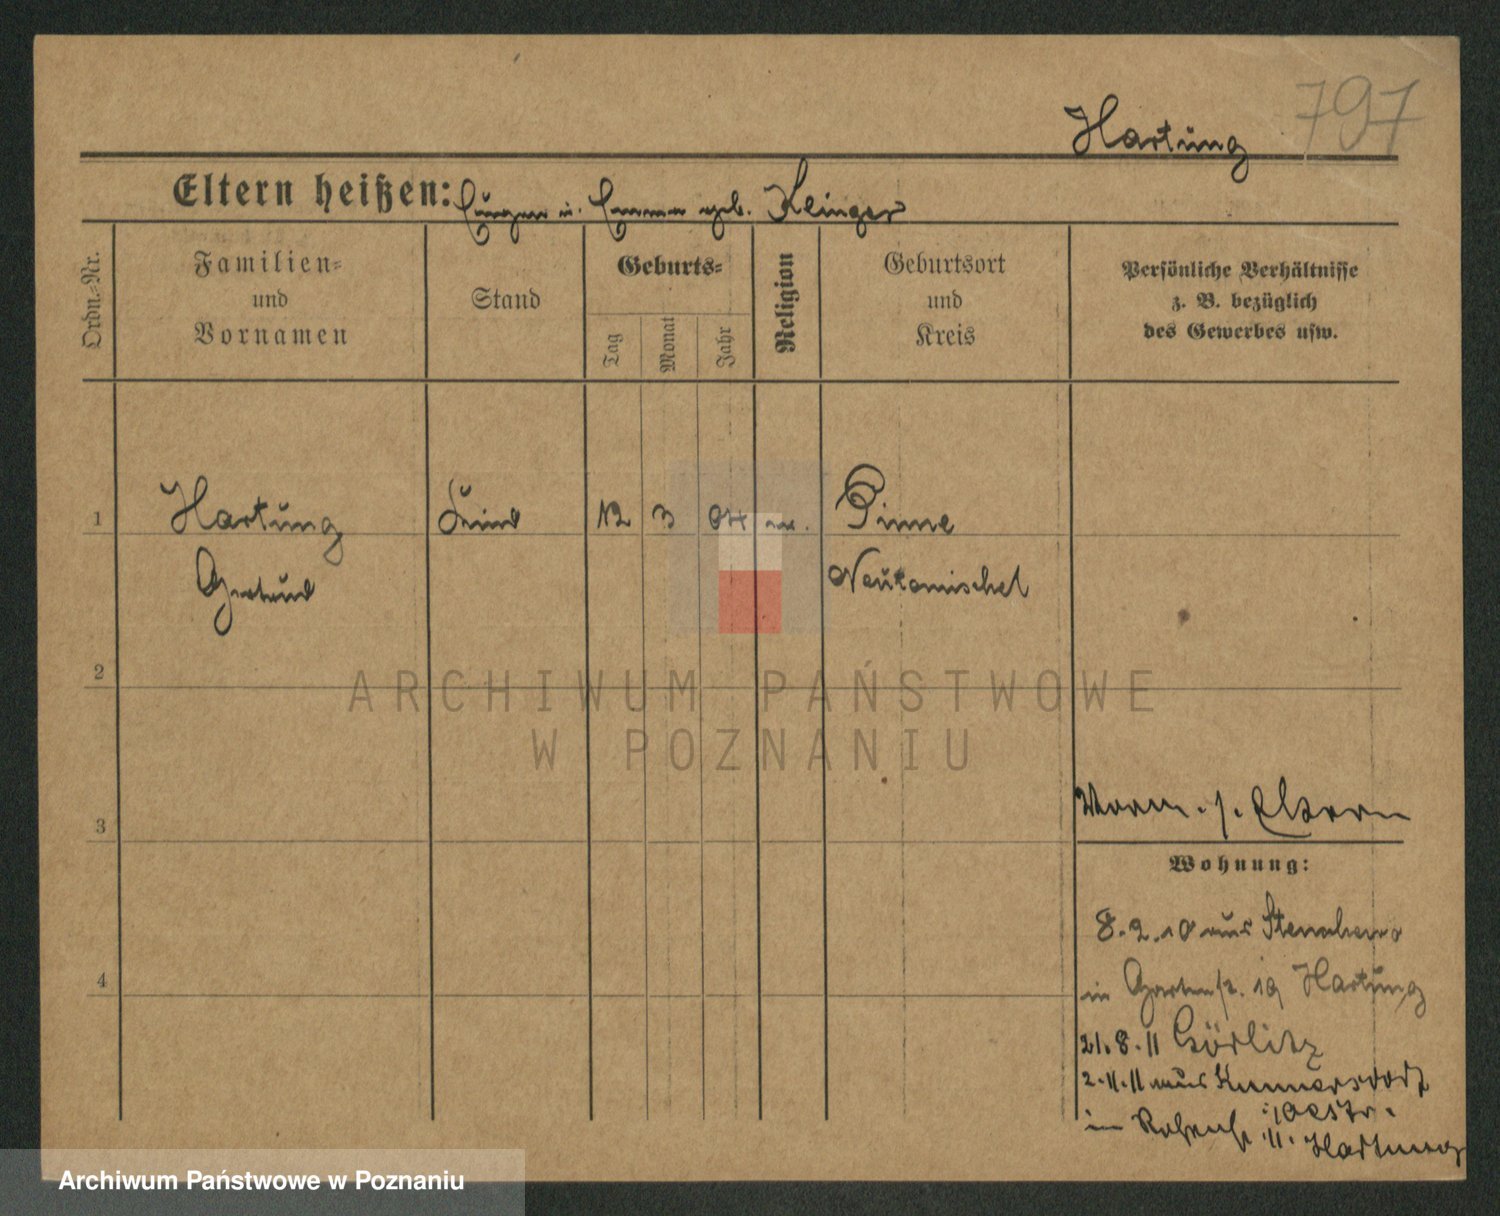 797
Hartung
Eltern heißen: Eugen u. Emma geb. Klinger
Ordn.-Nr.
Familien-
und
Vornamen
Stand
Geburts-
Tag
Monat
Jahr
Religion
Geburtsort
und
Kreis
Persönliche Verhältnisse
z. B. bezüglich
des Gewerbes usw.
1
Hartung
Kind
12
3
04
ev.
Pinne
Gertrud
Neutomischel
2
3
Verm. s. Eltern
Wohnung:
8.2.10 aus
4
in Gartenstr. 19 Hartung
21.8.11 Görlitz
2.11.11 aus Kunnersdorf
in 11. Hartung
ARCHIWUM PAŃSTWOWE
W POZNANIU
Archiwum Państwowe w Poznaniu